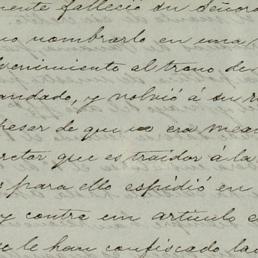 mente falleció su señor
no nombrarlo en una
venimiento al trono de
andado, y volvió á su r
pesar de que no era me
retor que es traidor á la
para ello espidió en
y contra em articulo e
e le han confiscado la